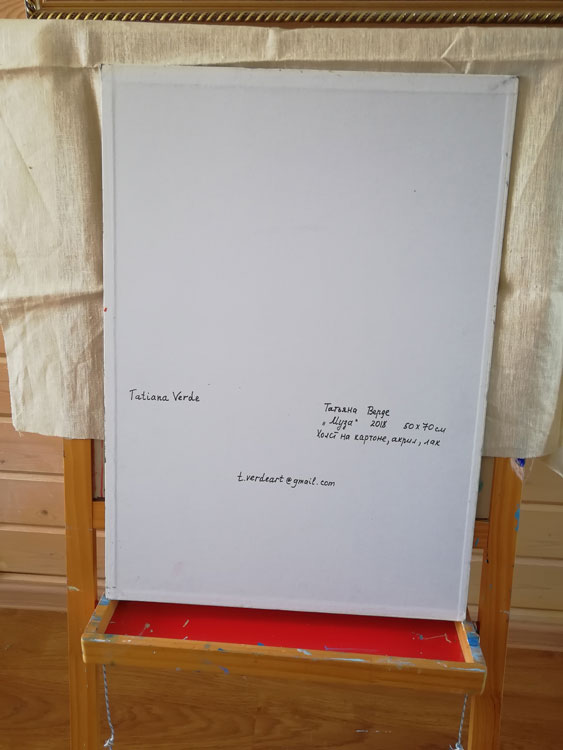 Tatiana Verde
Татьяна Верде
„Муза" 2018 50х70см
Холст на картоне, акрил, лак
t.verdeart@gmail.com